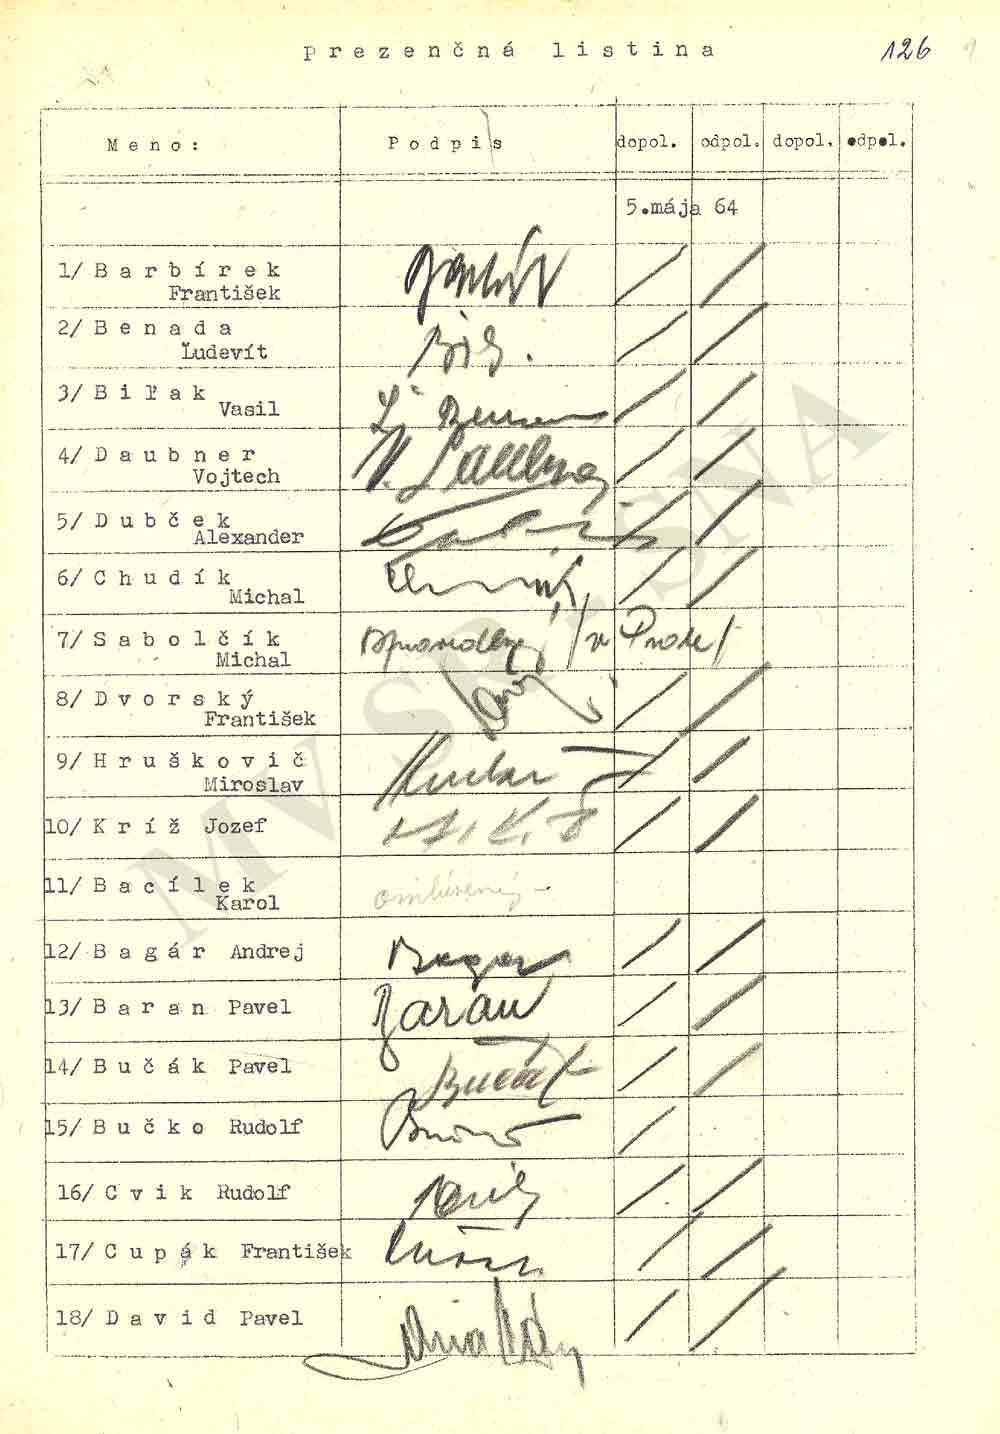 prezenčná listina 126
Meno: Podpis dopol. odpol. dopol. odpol.
5.mája 64
1/ Barbírek
František
2/ Benada
Ľudevít
3/ Biľak
Vasil
4/ Daubner
Vojtech
5/ Dubček
Alexander
6/ Chudík
Michal
7/ Sabolčík /v Prahe/
Michal
8/ Dvorský
František
9/ Hruškovič
Miroslav
10/ Kríž Jozef
11/ Bacílek
Karol
12/ Bagár Andrej Bagar
13/ Baran Pavel Baran
14/ Bučák Pavel Bučák
15/ Bučko Rudolf
16/ Cvik Rudolf
17/ Cupák František
18/ David Pavel
MV SR, SNA